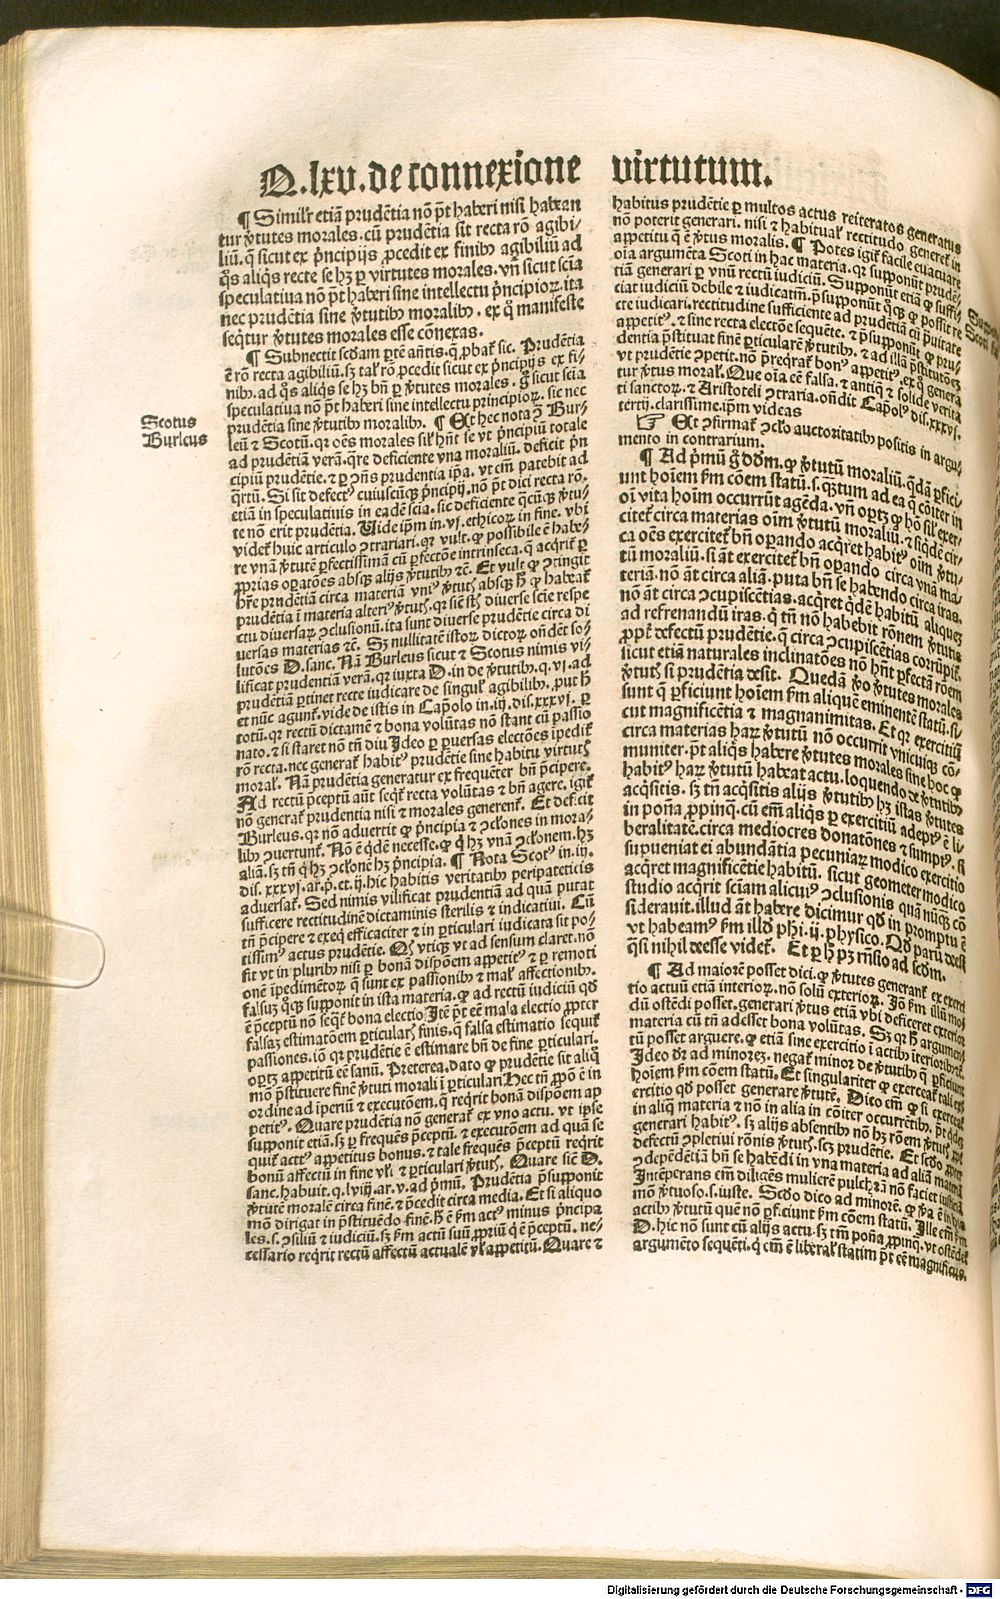 Q.lxv.de connexione virtutum.
¶ Similr̃ etiã prudẽtia nõ põt haberi nisi habean
tur v̓tutes morales.cũ prudẽtia sit recta rõ agibi-
liũ.q̃ sicut ex p̓ncipijs ꝓcedit ex finibꝰ agibiliũ ad
q̃s aliq̃s recte se hʒ per virtutes morales. vñ sicut scia
speculatiua nõ põt haberi sine intellectu p̓ncipioꝝ.ita
nec prudẽtia sine v̓tutibꝰ moralibꝰ. ex q̃ manifeste
seq̃tur v̓tutes morales esse cõnexas.
¶ Subnectit scðam ꝑtẽ añtis.q̃ ꝓbat̃ sic. Prudẽtia
ẽ rõ recta agibiliũ.sʒ tal' rõ ꝓcedit sicut ex p̓ncipijs ex fi-
nibꝰ.ad q̃s aliq̃s se hʒ bñ ꝑ v̓tutes morales. g̃ sicut scia
speculatiua nõ põt haberi sine intellectu principioꝝ. sic nec
prudẽtia sine v̓tutibꝰ moralibꝰ. ¶ Et hec nota ↄ̃ Bur-
leũ ⁊ Scotũ.qꝛ oẽs morales sil' hñt se vt p̓ncipiũ totale
Scotus
Burleus
ad prudẽtiã verã.q̃re deficiente vna moraliũ. deficit p̃n
cipiũ prudẽtie.⁊ ꝑ ↄñs prudentia ip̃a. vt cm̃ patebit ad
q̃rtũ. Si sit defectꝰ cuiuscũqꝫ p̓ncipij.nõ põt dici recta rõ.
etiã in speculatiuis in eadẽ scia. sic deficiente q̃cũqꝫ v̓tu-
te nõ erit prudẽtia. Vide ip̃m in.vj.ethicoꝝ in fine. vbi
videt̃ huic articulo ↄ̃trariari.qꝛ vult.ꝙ possibile ẽ habe-
re vnã v̓tutẽ ꝑfectissimã cũ ꝑfectõe intrinseca.q̃ acq̃rit̃ ꝑ
ꝓprias oꝑatões absqꝫ alijs v̓tutibꝰ ⁊c. Et vult ꝙ ↄ̃tingit
h̃re prudẽtiã circa materiã vniꝰ v̓tut̓ absqꝫ h̃ ꝙ habeat̃
prudẽtia ĩ materia alteriꝰ v̓tut̓.qꝛ siẽ st̃ diuerse scie respe
ctu diuersaꝝ ↄclusionũ.ita sunt diuerse prudẽtie circa di
uersas materias ⁊c. Sʒ nullitatẽ istoꝝ dictoꝝ oñdẽt so-
lutões D.sanc. Nã Burleus sicut ⁊ Scotus nimis vi-
lificat prudentiã verã.qꝛ iuxta D.in de v̓tutibꝰ.q.vj.ad
prudẽtiã ꝑtinet recte iudicare de singul' agibilibꝰ.ꝓut h̃
et nũc agunt̃.vide de istis in Cap̃olo in.iij.dis.xxxvj. ꝑ
totũ.qꝛ rectũ dictamẽ ⁊ bona volũtas nõ stant cũ passio
nato.⁊ si staret nõ tñ diu Ideo ꝑ ꝑuersas electões ĩpedit̃
rõ recta.nec generat̃ habitꝰ prudẽtie sine habitu virtut̓
moral'. Nã prudẽtia generatur ex frequẽter bñ p̓cipere.
Ad rectũ p̃ceptũ aũt seq̃t̃ recta volũtas ⁊ bñ agere. igit̃
nõ generat̃ prudentia nisi ⁊ morales generent̃. Et deficit
Burleus.qꝛ nõ aduertit ꝙ p̓ncipia ⁊ ↄ̃clones in mora-
libꝰ ↄuertunt̃. Nõ ẽ q̃dẽ necesse.ꝙ q̃ hʒ vnã ↄ̃clonem.hʒ
aliã.sʒ tñ q̃ hʒ ↄ̃clonẽ hʒ p̓ncipia. ¶ Nota Scotꝰ in.iij.
dis.xxxvj.ar.p̃.et.ij.hic habitis veritatibꝰ peripateticis
aduersat̃. Sed nimis vilificat prudentiam ad quã putat
sufficere rectitudinẽ dictaminis sterilis ⁊ indicatiui. Cũ
tñ p̓cipere ⁊ exeq̃ efficaciter ⁊ in ꝑticulari iudicata sit po-
tissimꝰ actus prudẽtie. Qð vtiqꝫ vt ad sensum claret.nõ
fit vt in pluribꝰ nisi ꝑ bonã dispõem appetitꝰ ⁊ ꝑ remoti
onẽ ĩpedimẽtoꝝ q̃ sunt ex passionibꝰ ⁊ mal' affectionibꝰ.
falsuʒ q̃qꝫ supponit in ista materia.ꝙ ad rectũ iudiciũ qð
ẽ p̃ceptũ nõ seq̃t̃ bona electio Itẽ põt eẽ mala electio ꝓpter
falsaʒ estimatõem ꝑticularis finis.q̃ falsa estimatio sequit̃
passiones.iõ qꝛ prudẽtie ẽ estimare bñ de fine ꝑticulari.
oꝑtʒ appetitũ eẽ sanũ. Preterea.dato ꝙ prudẽtie sit aliq̃
mõ p̃stituere finẽ v̓tuti morali ĩ ꝑticulari Hec tñ ꝓpõ ẽ in
ordine ad ĩperiũ ⁊ executõem.q̃ reqrit bonã dispõem ap
petitꝰ. Quare prudẽtia nõ generat̃ ex vno actu. vt ipse
supponit etiã.sʒ ꝑ frequẽs p̃ceptũ.⁊ executõem ad quã se
quit̃ actꝰ appetitus bonus.⁊ tale frequẽs p̃ceptũ reqrit
bonũ affectũ in fine vl'i ⁊ ꝑticulari v̓tut̓. Quare siẽ D.
sanc.habuit.q.lviij.ar.v.ad p̓mũ. Prudẽtia p̃supponit
v̓tutẽ moralẽ circa finẽ.⁊ p̓cedit circa media. Et si aliquo
mõ dirigat in p̃stituẽdo finẽ.h̃ ẽ ẜm actꝰ minus p̓ncipa
les.s.ↄ̃siliũ ⁊ iudiciũ.sʒ ẜm actũ suũ ꝓpriũ q̃ ẽ p̃ceptũ. ne-
cessario reqrit rectũ affectũ actualẽ vl' appetitũ. Quare ⁊
habitus prudẽtie ꝑ multos actus reiteratos generatus
nõ poterit generari. nisi ⁊ habitual' rectitudo generet̃ in
appetitu q̃ ẽ v̓tus moralis. ¶ Potes igit̃ facile euacuare
oĩa argumẽta Scoti in hac materia.qꝛ supponũt prudẽ-
tiã generari ꝑ vnũ rectũ iudiciũ. Supponũt etiã ꝙ suffi-
ciat iudiciũ debile ⁊ iudicatiũ.p̃supponũt q̃qꝫ ꝙ possit re
cte iudicari.rectitudine sufficiente ad prudẽtiã cũ p̃uitate
appetitꝰ.⁊ sine recta electõe sequẽte.⁊ p̃supponũt ꝙ pru-
dentia p̃stituat finẽ ꝑticularẽ v̓tutibꝰ.⁊ ad illã p̃stitutõeʒ
vt prudẽtie ↄ̃petit.nõ p̃reqrat̃ bonꝰ appetitꝰ.ex q̃ genera
tur v̓tus moral'. Que oĩa cẽ falsa.⁊ antiq̃ ⁊ solide verita
ti sanctoꝝ.⁊ Aristoteli ↄ̃traria.oñdit Cap̃olꝰ dis.xxxvj.
tertij.clarissime.ip̃m videas
☞ Et ↄfirmat̃ ↄ̃clo auctoritatibꝰ positis in argu-
mento in contrarium.
¶ Ad p̓mũ g̃ dðm.ꝙ v̓tutũ moraliũ.q̃dã ꝑfici-
unt hoĩem ẜm cõem statũ.s.q̃ʒtum ad ea q̃ cõiter in
oĩ vita hoĩm occurrũt agẽda. vñ oꝑtʒ ꝙ hõ sil' exer-
citet̃ circa materias oĩm v̓tutũ moraliũ.⁊ siq̃dẽ cir-
ca oẽs exercitet̃ bñ oꝑando acq̃ret habitꝰ oĩm v̓tu-
tũ moraliũ.si ãt exercitet̃ bñ oꝑando circa vnã ma-
teriã.nõ ãt circa aliã.puta bñ se habendo circa iras.
nõ ãt circa ↄ̃cupiscẽtias.acq̃ret q̃dẽ habitũ aliqueʒ
ad refrenandũ iras.q̃ tñ nõ habebit rõnem v̓tutis
ꝓpt̃ defectũ prudẽtie.q̃ circa ↄ̃cupiscẽtias corrũpit̃.
sicut etiã naturales inclinatões nõ hñt ꝑfectã rõem
v̓tut̓ si prudẽtia desit. Quedã v̓o v̓tutes morales
sunt q̃ ꝑficiunt hoĩem ẜm aliquẽ eminentẽ statũ.si-
cut magnificẽtia ⁊ magnanimitas. Et qꝛ exercitiũ
circa materias haꝝ v̓tutũ nõ occurrit vnicuiqꝫ cõ-
muniter.põt aliq̃s habere v̓tutes morales sine hoc ꝙ
habitꝰ haꝝ v̓tutũ habeat actu.loquendo de v̓tutibꝰ
acq̃sitis. sʒ tñ acq̃sitis alijs v̓tutibꝰ hʒ istas v̓tutes
in põna ꝓpinq̃.cũ em̃ aliq̃s ꝑ exercitiũ adeptꝰ ẽ li-
beralitatẽ.circa mediocres donatões ⁊ sumptꝰ. si
supueniat ei abundãtia pecuniaꝝ modico exercitio
acq̃ret magnificẽtie habitũ. sicut geometer modico
studio acq̃rit sciam alicuiꝰ ↄ̃clusionis quã nũqꝫ cõ
siderauit.illud ãt habere dicimur qð in promptu ẽ
vt habeamꝰ ẜm illð phi.ij.physico. Qð parũ deest
q̃si nihil deesse videt̃. Et ꝑ h̃ pʒ rñsio ad scðm.
¶ Ad maiorẽ posset dici.ꝙ v̓tutes generant̃ ex exerci
tio actuũ etiã interioꝝ.nõ solũ exterioꝝ. Iõ ẜm illũ mo-
dũ ostẽdi posset.generari v̓tus etiã vbi deficeret exterior
materia cũ tñ adesset bona volũtas. Sʒ qꝛ h̃ argumen-
tũ posset arguere.ꝙ etiã sine exercitio ĩ actibꝰ ĩterioribꝰ.
Ideo dr̃ ad minoreʒ.negat̃ minor de v̓tutibꝰ q̃ ꝑficiunt
hoĩem ẜm cõem statũ. Et singulariter ꝙ exerceat̃ tali
ercitio qð posset generare v̓tutẽ. Dico em̃ ꝙ si exerceat̃
in aliq̃ materia ⁊ nõ in alia in cõiter occurrẽtibꝰ.
generari habitꝰ.sʒ alijs absentibꝰ nõ hʒ rõem v̓tut̓
defectũ ↄ̃pletiui rõnis v̓tut̓.scʒ prudẽtie. Et scðo
ↄ̃depẽdẽtiã bñ se habẽdi in vna materia ad aliã
Intẽperans em̃ diligẽs mulierẽ pulchrã nõ faciet
mõ v̓tuoso.s.iuste. Scðo dico ad minorẽ.
actibꝰ v̓tutũ quẽ nõ ꝑficiunt ẜm cõem statũ. Ille em̃ ẜm
D.hic nõ sunt cũ alijs actu.sʒ tm̃ põna ꝓpinq̃.
argumẽto sequẽti.q̃ em̃ ẽ liberal' statim põt eẽ magnificus.
Digitalisierung gefördert durch die Deutsche Forschungsgemeinschaft - DFG